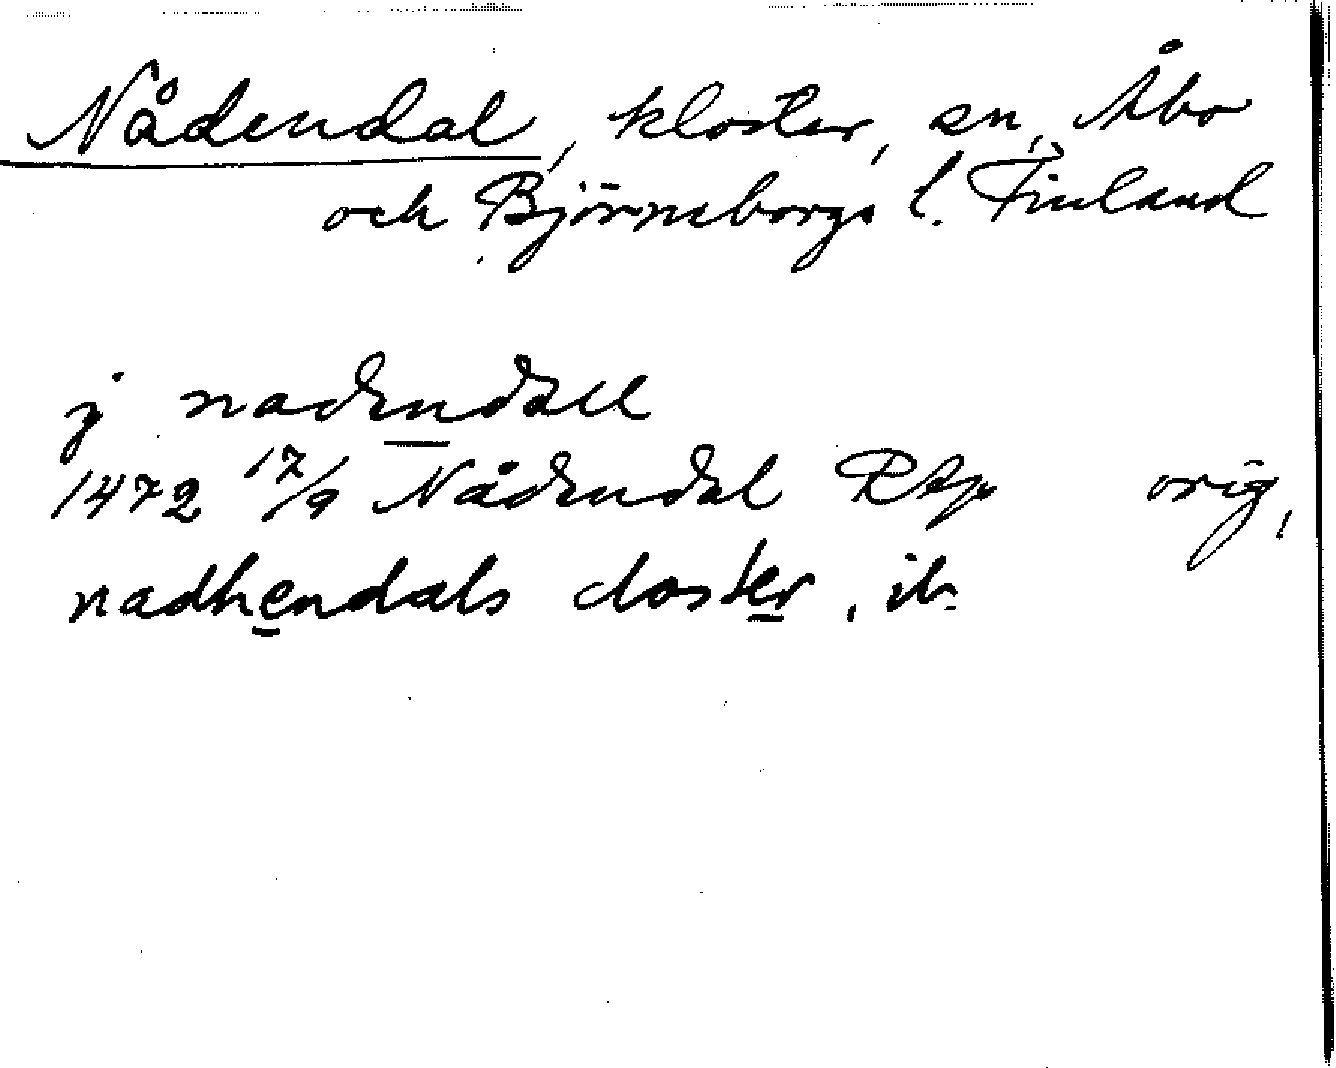 Nådendal, kloster, sn, Åbo
och Björneborgs l. Finland
j nadendall
1472 17/9 Nådendal RAp orig,
nadhendals closter, ib.